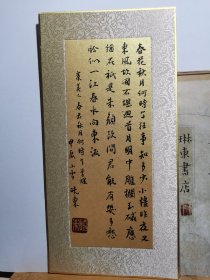 春花秋月何時了往事知多少小樓昨夜又
東風故國不堪回首月明中雕闌玉砌應
猶在祇是朱顏改問君能有幾多愁
恰似一江春水向東流
虞美人春花秋月何時了李煜
甲辰小雪
琳東書店